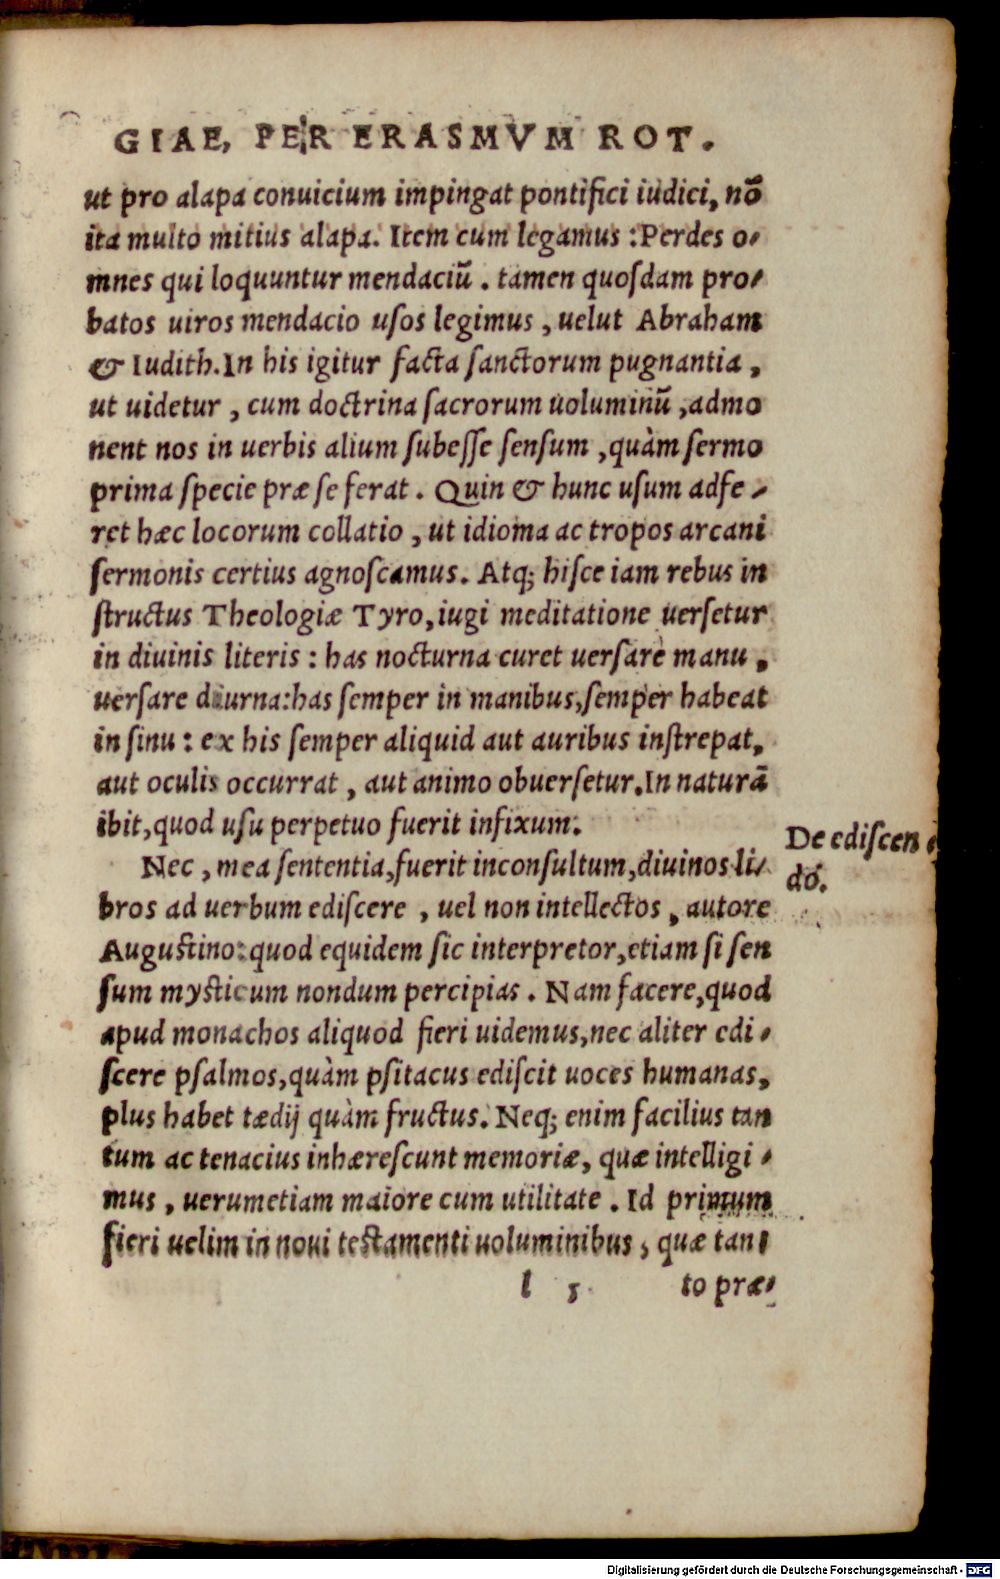 GIAE, PER ERASMVM ROT.
ut pro alapa conuicium impingat pontifici iudici, nō
ita multo mitius alapa. Item cum legamus: Perdes o-
mnes qui loquuntur mendaciū. tamen quosdam pro-
batos uiros mendacio usos legimus, uelut Abraham
& Iudith. In his igitur facta sanctorum pugnantia,
ut uidetur, cum doctrina sacrorum uoluminū, admo
nent nos in uerbis alium subesse sensum, quàm sermo
prima specie præ se ferat. Quin & hunc usum adfe-
ret hæc locorum collatio, ut idioma ac tropos arcani
sermonis certius agnoscamus. Atq; hisce iam rebus in
structus Theologiæ Tyro, iugi meditatione uersetur
in diuinis literis: has nocturna curet uersare manu,
uersare diurna: has semper in manibus, semper habeat
in sinu: ex his semper aliquid aut auribus instrepat,
aut oculis occurrat, aut animo obuersetur. In naturā
ibit, quod usu perpetuo fuerit infixum.
De ediscen
do.
Nec, mea sententia, fuerit inconsultum, diuinos li-
bros ad uerbum ediscere, uel non intellectos, autore
Augustino: quod equidem sic interpretor, etiam si sen
sum mysticum nondum percipias. Nam facere, quod
apud monachos aliquod fieri uidemus, nec aliter edi-
scere psalmos, quàm psitacus ediscit uoces humanas,
plus habet tædij quàm fructus. Neq; enim facilius tan
tum ac tenacius inhærescunt memoriæ, quæ intelligi-
mus, uerumetiam maiore cum utilitate. Id primum
fieri uelim in noui testamenti uoluminibus, quæ tan-
l 5 to præ-
Digitalisierung gefördert durch die Deutsche Forschungsgemeinschaft - DFG